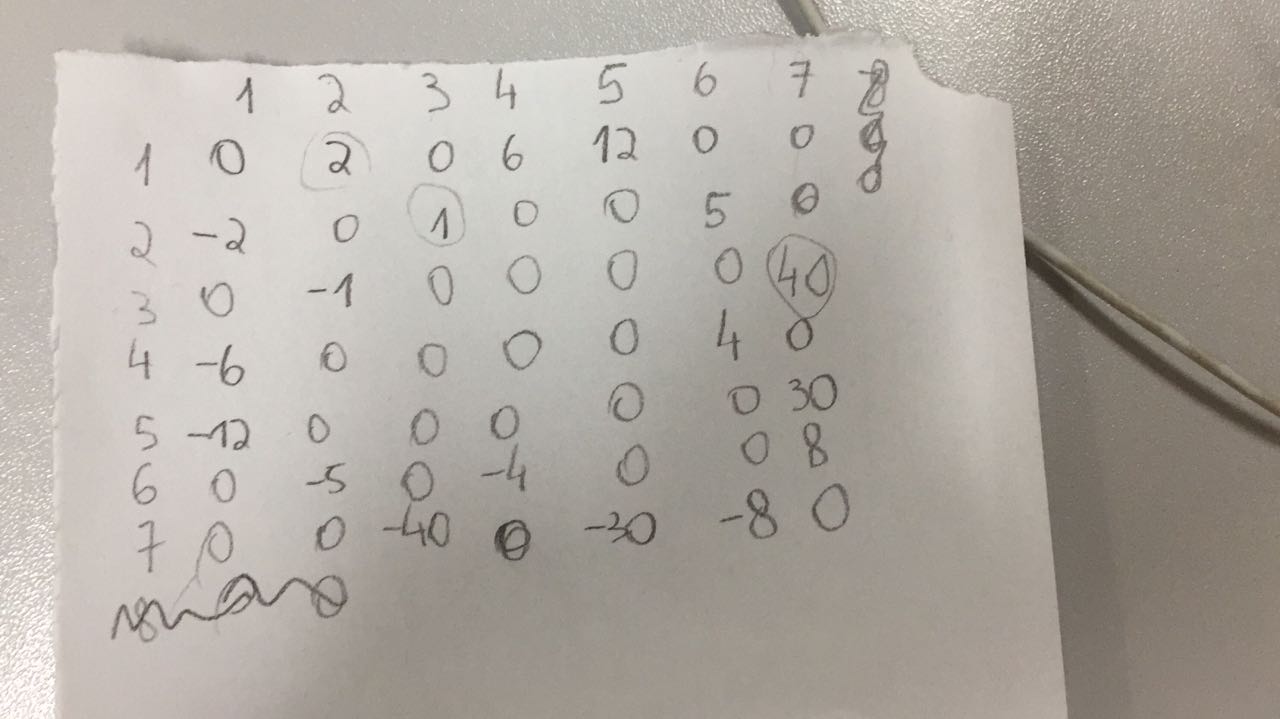 1 2 3 4 5 6 7 8
1 0 2 0 6 12 0 0
2 -2 0 1 0 0 5 0
3 0 -1 0 0 0 0 40
4 -6 0 0 0 0 4 0
5 -12 0 0 0 0 0 30
6 0 -5 0 -4 0 0 8
7 0 0 -40 0 -30 -8 0